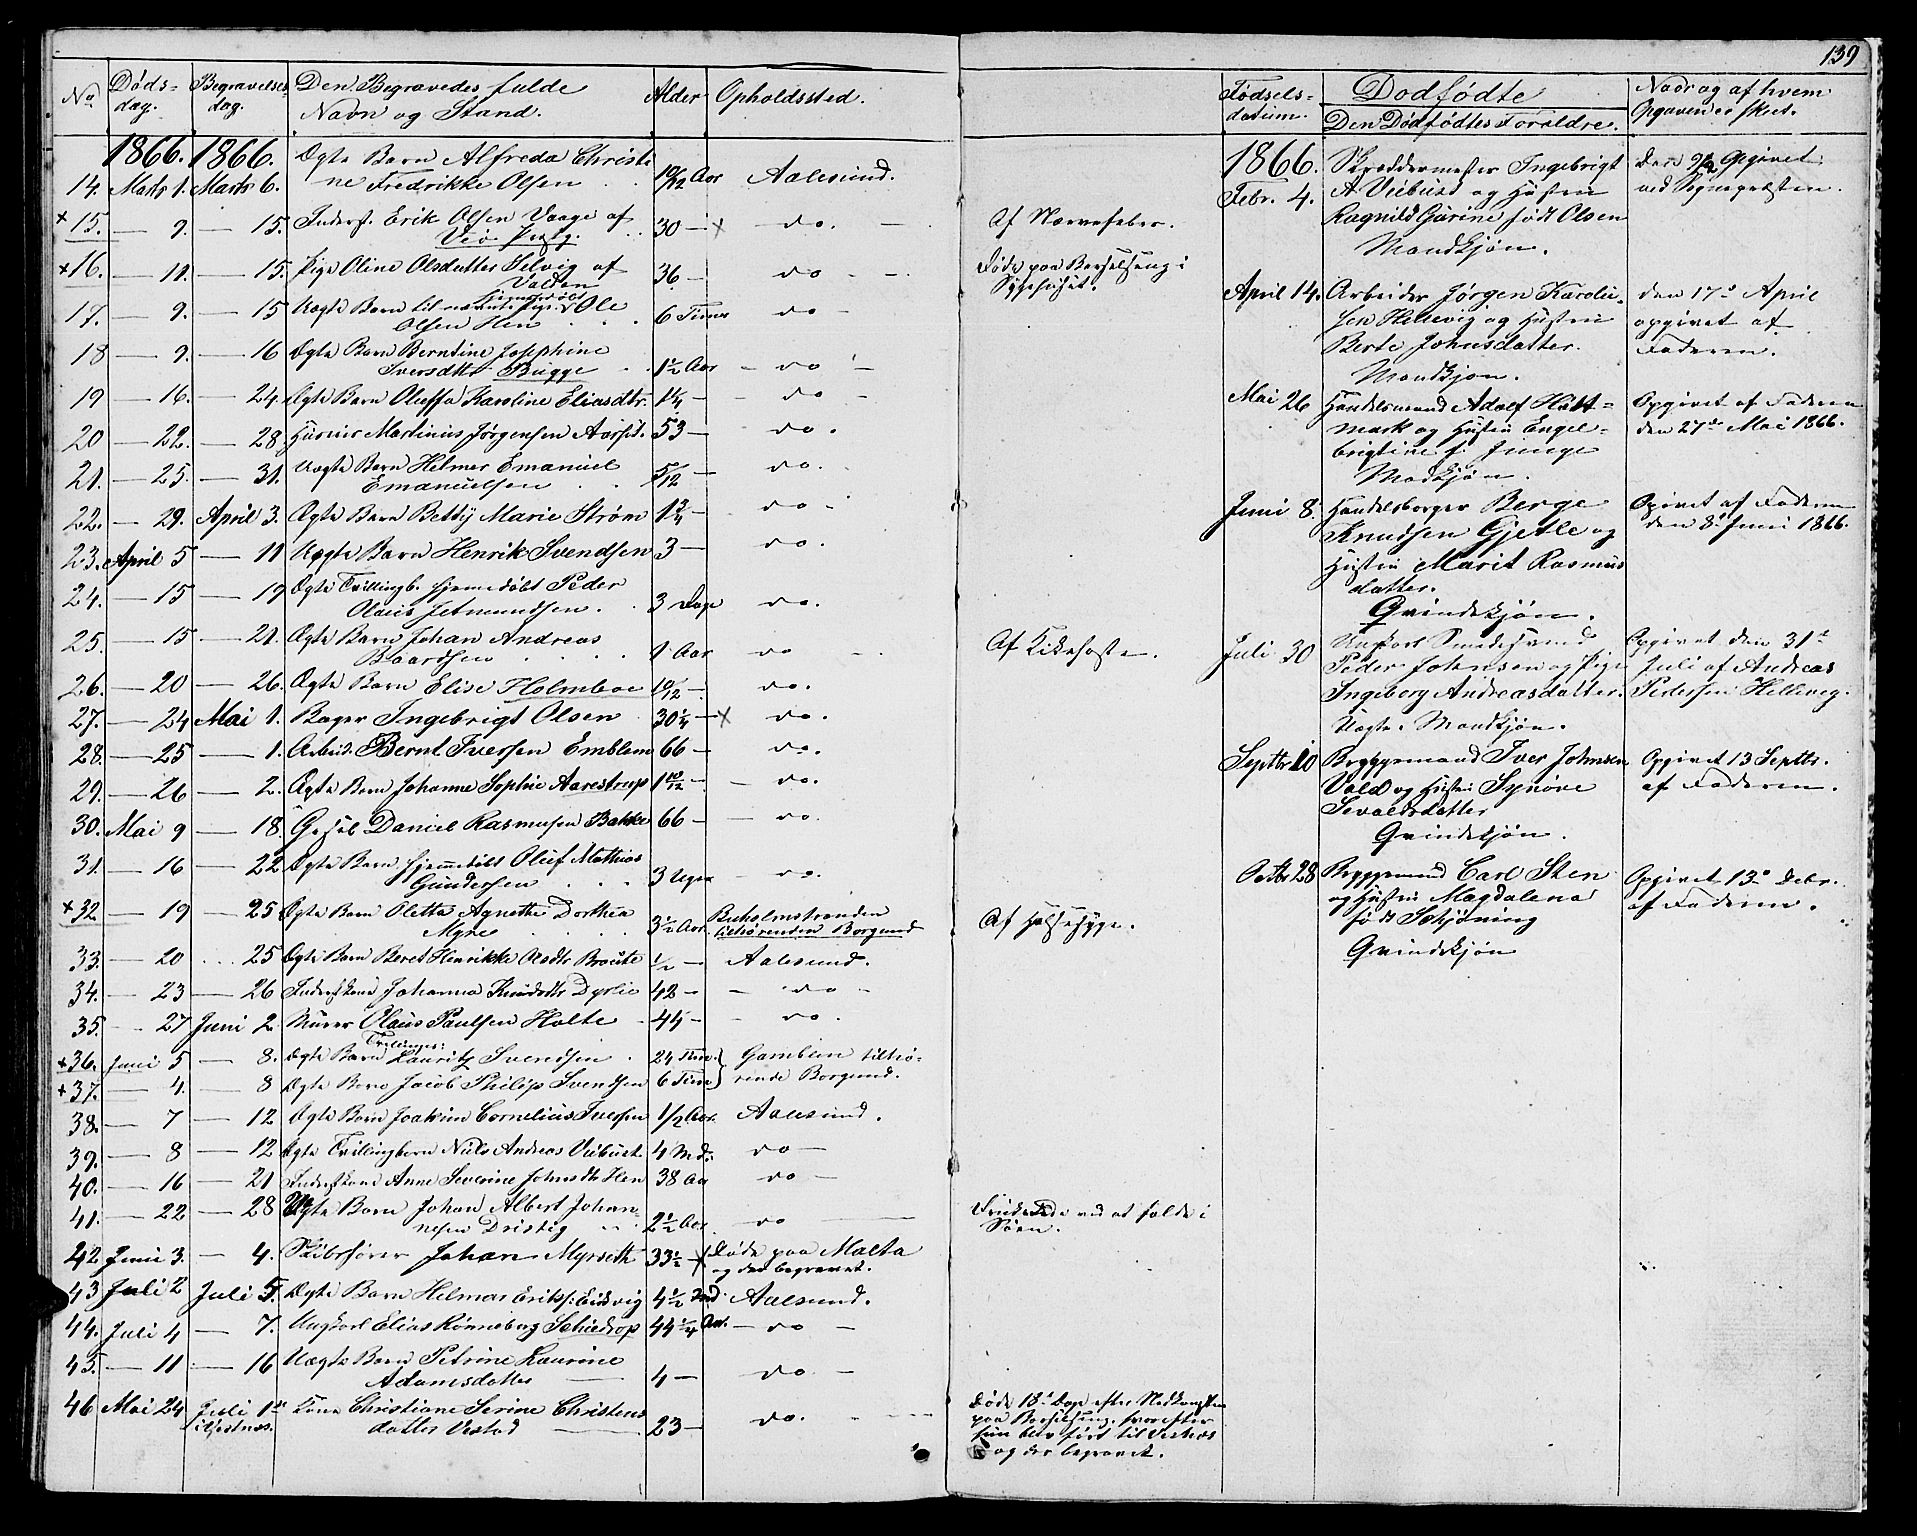 139
No. Døds- Begravelses- Den Begravedes fulde Alder Opholdssted.
dag. dag. Navn og Stand.
1866. 1866. Ægte Barn Alfreda Christi
14. Marts 1. Marts 6. ne Fredrikke Olsen 10/12 Aar Aalesund.
+15. — 9. — 15. Inderst. Erik Olsen Vaage af
Veø Prstg. 30 — do. Af Nervefeber.
+16. — 11. — 15. Pige Oline Olsdatter Selvig af
Valden 36 — do Døde paa Barselseng i
Sygehuset.
17. — 9. — 15 Uægte Barn hjemmedøbt Ole
Olsen Hen 6 Timer do
18 — 9. — 16 Ægte Barn Berntine Josephine
Iversdttr Brügge 1½ Aar do
19 — 16. — 24. Ægte Barn Oluffa Karoline Eliasdtr. 1¼ — do
20 — 22. — 28. Martinus Jørgensen Aarset. 53 — do.
21. — 25. — 31. Uægte Barn Helmer Emanuel
Emanuelsen 5/12 — do.
22. — 29. April 3. Ægte Barn Betty Marie Strøm 1¾ — do
23. April 5 — 11 Uægte Barn Henrik Svendsen 3 — do.
24. — 15 — 19 Ægte Tvillingb. hjemmedøbt Peder
Olaus Jetmundsen 3 Dage do.
25. — 15 — 21. Ægte Barn Johan Andreas
Baardsen 1 Aar do Af Kikehoste.
26. — 20 — 26. Ægte Barn Elise Holmboe 10/12 — do.
27. — 24 Mai 1. Bager Ingebrigt Olsen 30¼ — do.
28. — 25 — 1. Arbeid. Bernt Iversen Emblem 66 — do.
29. — 26 — 2. Ægte Barn Johanne Sophie Aarestrup 1 10/12 — do.
30. Mai 9 — 18. Daniel Rasmusen Bakke 66 — do.
31. — 16 — 22 Ægte Barn hjemmedøbt Oluf Mathias
Gundersen 3 Uger do.
+32 — 19 — 25 Ægte Barn Oletta Agnethe Dorthea
Myre 3½ Aar Buholmstranden
tilhørenden Borgund Af Halssyge.
33. — 20 25 Ægte Barn Beret Henrikke 1/2 — Aalesund.
34. — 23 — 26 Johanna Knudsdtr Dyrlie 42 — do
35. — 27 Juni 2. Murer Olaus Paulsen Holte 44 — do.
+36. Juni 5 — 8. Ægte Barn Tvillinger: Lauritz Svendsen 24 Tim. Gamleim tilhø-
+37. — 4. — 8 Ægte Barn Jacob Philip Svendsen 6 Tim rende Borgund.
38. — 7 — 12 Ægte Barn Joakim Cornelius Iversen 1/2 Aar. Aalesund.
39. — 8 — 12 Ægte Tvillingbarn Nils Andreas Viebust 4 Md. do
40. — 16 — 21 Anne Severine Johnsdtr Hen 38 Aar do
41. — 22 — 28 Uægte Barn Johan Albert Johan-
nesen Dristig 2½ Aar. do Druknede ved at falde i
Søen.
42 Juni 3. — 4. Skibsfører Johan Myrseth 33½ — Døde paa Malta
og der begravet.
43 Juli 2 Juli 5. Ægte Barn Helmar Eriks: Eidsvig 4½ Md. Aalesund.
44. Juli 4 — 7. Ungkarl Elias Rønneberg Schiedrop 44¼ Aar. — do —
45. — 11 — 16 Uægte Barn Petrine Laurine
Adamsdatter 4 — do —
46 Mai 24 Juli 1ste Kone Christiane Serine Christens
datter Vestad 23 — do. Døde 18de Dag efter Nedkomsten
paa Barselseng, hvorefter
hun blev ført til Vestnæs
og der begravet.
Fødsels- Dødfødte Naar og af hvem
datum. Den Dødfødtes Forældre. Opgaven er skeet.
1866. Skræddermester Ingebrigt Den 9/2 Opgivet
Febr. 4. A. Viebust og Hustru ved Sognepræsten.
Ragnild Gurine født Olsen
Mandkjøn.
April 14. Arbeider Jørgen Karolu- den 17de April
sen Hellevig og Hustru opgivet af
Berte Johnsdatter. Faderen.
Mandkjøn.
Mai 26 Handelsmand Adolf Hatt- Opgivet af Faderen
mark og Hustru Engel- den 27de Mai 1866.
brigtine f. Junge
Mandkjøn.
Juni 8. Handelsborger Berge Opgivet af Faderen
Knudsen Gjetle og den 8. Juni 1866.
Hustru Marit Rasmus
datter.
Qvindekjøn.
Juli 30 Ungkarl Smedesvend Opgivet den 31te
Peder Johnsen og Pige Juli af Andreas
Ingeborg Andreasdatter. Pedersen Hellevig.
Uægte. Mandkjøn.
Septbr 10 Bryggemand Iver Johnsen Opgivet 13 Septbr.
Vold og Hustru Synøve af Faderen.
Sevaldsdatter
Qvindekjøn.
Octbr 28 Bryggemand Carl Sten Opgivet 13de Debr.
og Hustru Magdalena af Faderen.
født Schjøning
Qvindekjøn